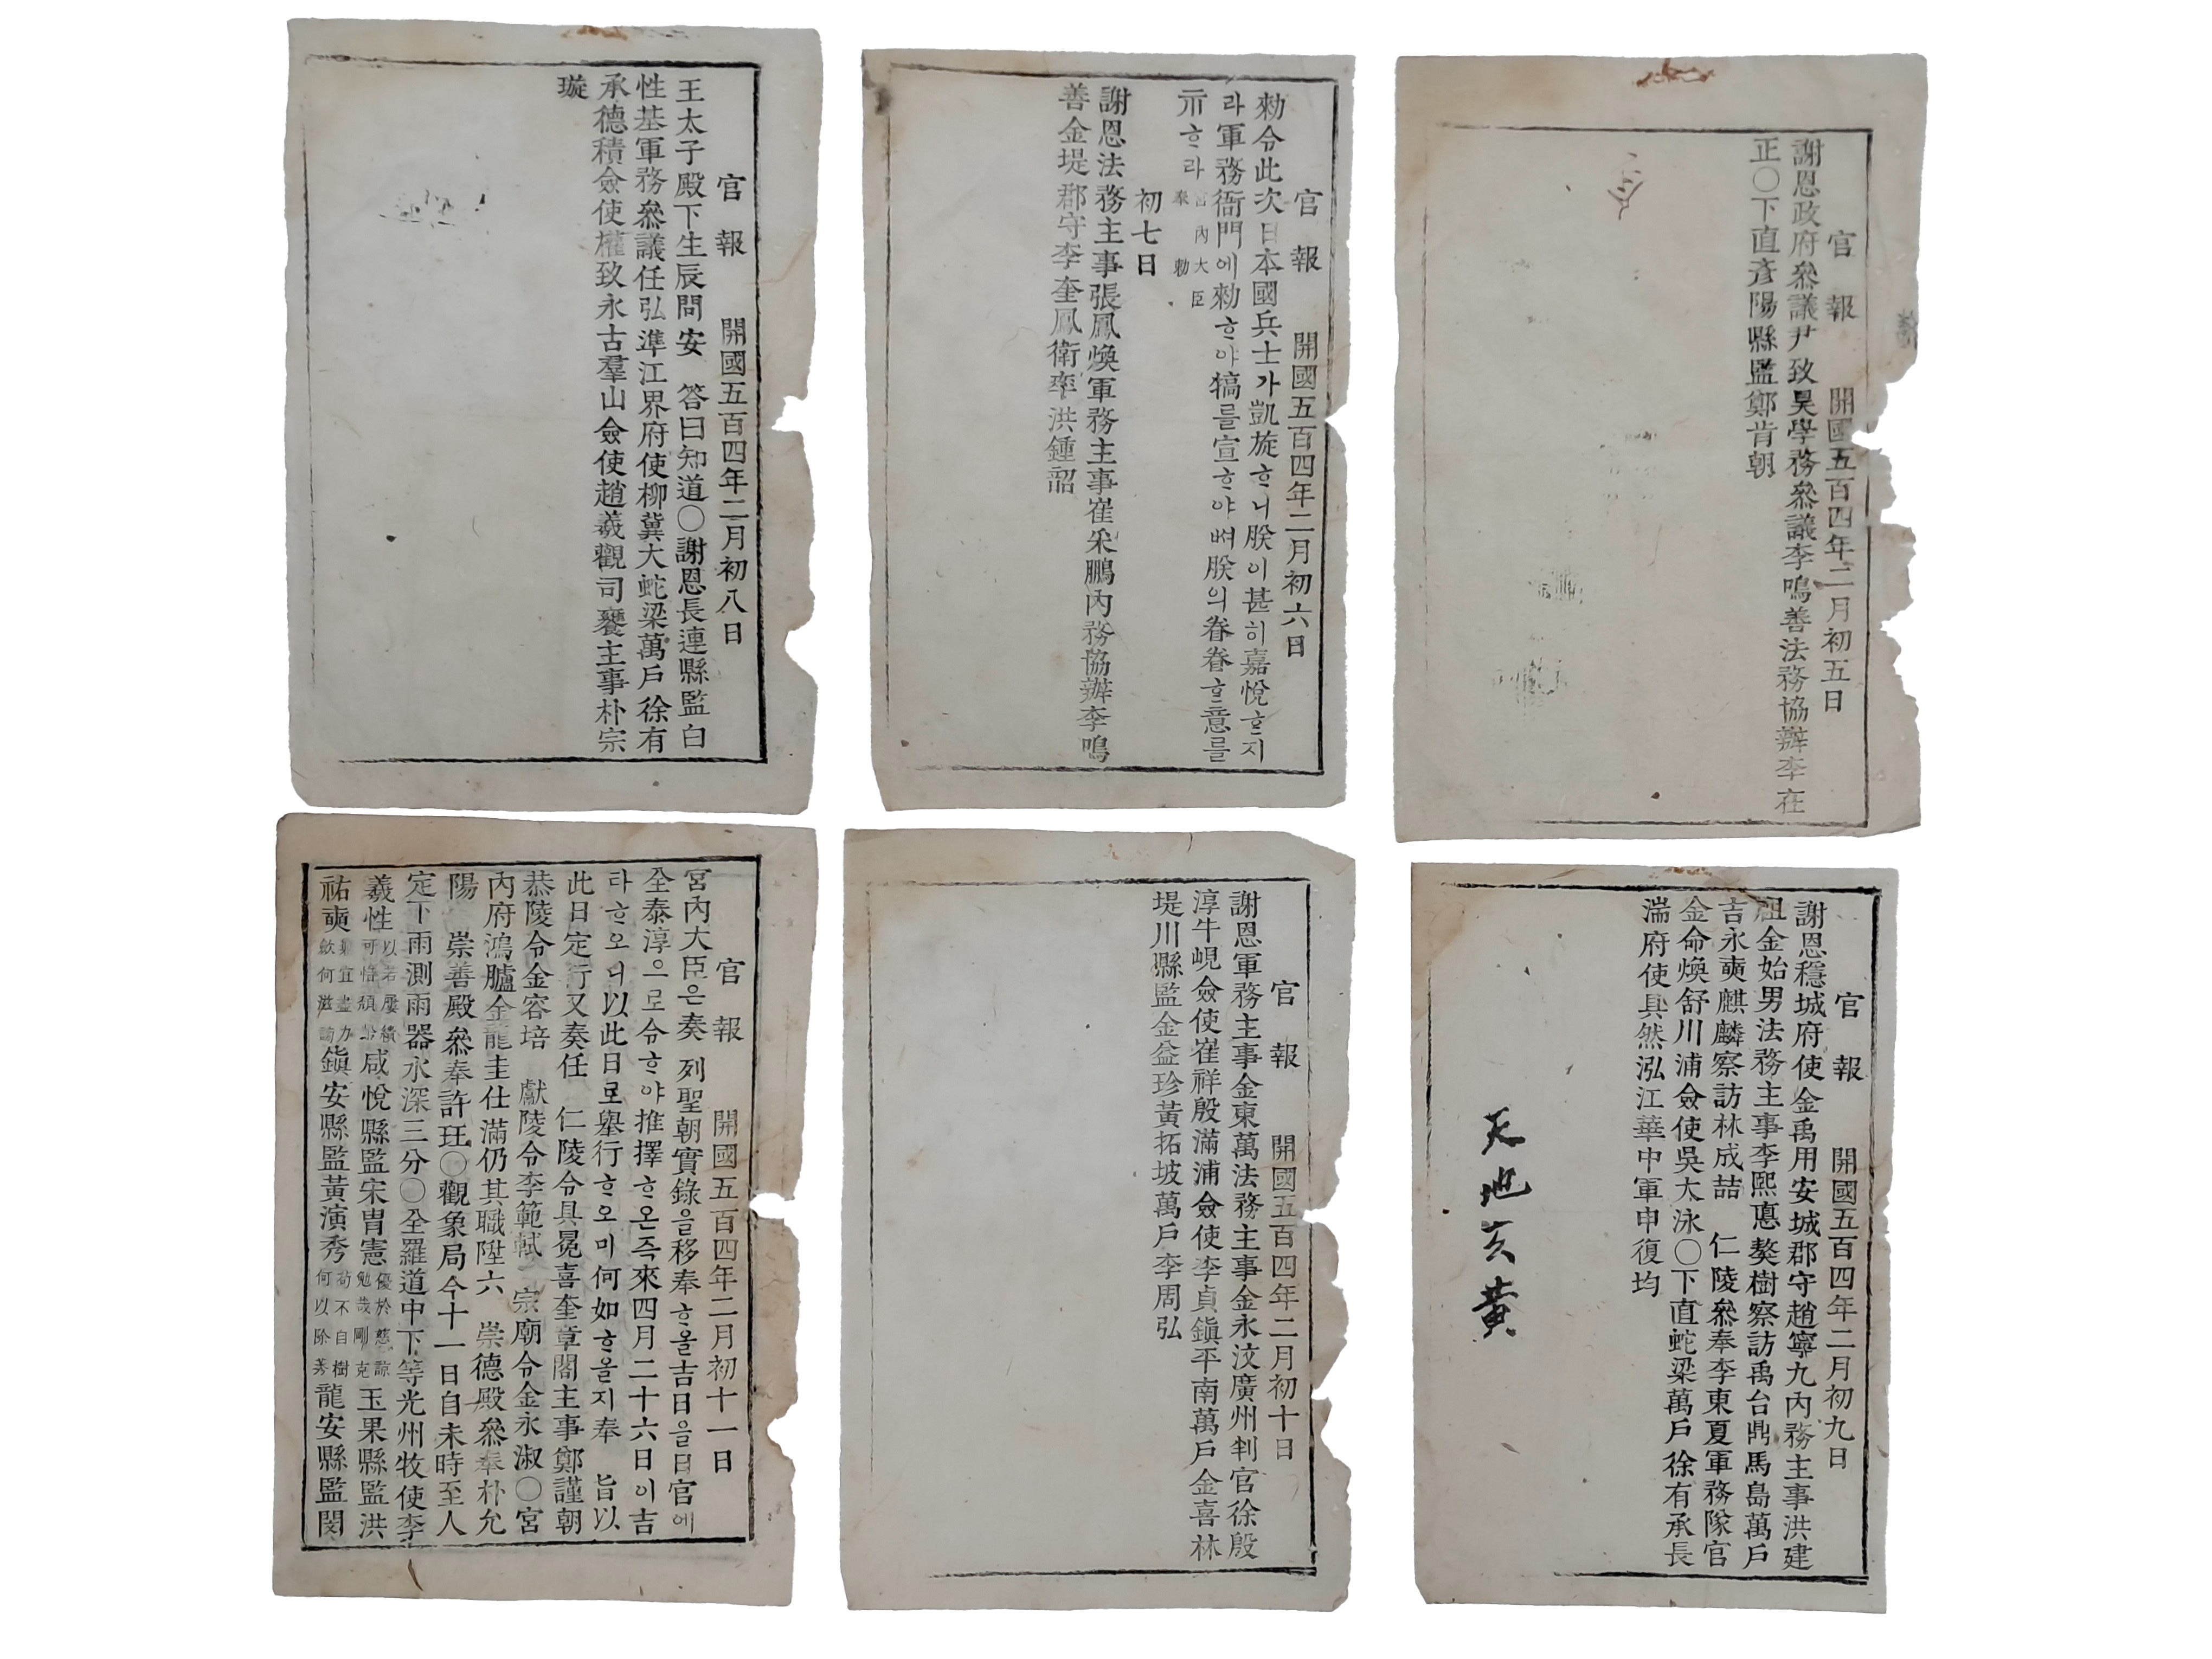 官報 開國五百四年二月初五日
謝恩政府叅議尹致昊學務叅議李鳴善法務協辦李在
正○下直彥陽縣監鄭肯朝
官報 開國五百四年二月初六日
勅令此次日本國兵士가凱旋ᄒᆞ니朕이甚히嘉悅ᄒᆞᆯ지
라軍務衙門에勅ᄒᆞ야犒를宣ᄒᆞ야ᄡᅥ朕의眷眷ᄒᆞᆫ意를
示ᄒᆞ라 宮內大臣奉勅
初七日
謝恩法務主事張鳳煥軍務主事崔采鵬內務協辦李鳴
善金堤郡守李奎鳳衛率洪鍾韶
官報 開國五百四年二月初八日
王太子殿下生辰問安 答曰知道○謝恩長連縣監白
性基軍務叅議任弘準江界府使柳冀大蛇梁萬戶徐有
承德積僉使權致永古羣山僉使趙羲觀司饔主事朴宗
璇
官報 開國五百四年二月初九日
謝恩穩城府使金禹用安城郡守趙寧九內務主事洪建
祖金始男法務主事李熙悳獒樹察訪禹台鼎馬島萬戶
吉永奭麒麟察訪林成喆 仁陵叅奉李東夏軍務隊官
金命煥舒川浦僉使吳大泳○下直蛇梁萬戶徐有承長
湍府使具然泓江華中軍申復均
天地玄黃
官報 開國五百四年二月初十日
謝恩軍務主事金東萬法務主事金永汶廣州判官徐殷
淳牛峴僉使崔祥殷滿浦僉使李貞鎭平南萬戶金喜林
堤川縣監金益珍黃拓坡萬戶李周弘
官報 開國五百四年二月初十一日
宮內大臣은奏 列聖朝實錄을移奉ᄒᆞᄋᆞᆯ吉日을日官에
全泰淳으로令ᄒᆞ야推擇ᄒᆞ온즉來四月二十六日이吉
라ᄒᆞ오니以此日로舉行ᄒᆞ오미何如ᄒᆞᄋᆞᆯ지奉 旨以
此日定行又奏任 仁陵令具冕喜奎章閣主事鄭謹朝
恭陵令金容培 獻陵令李範軾 宗廟令金永淑○宮
內府鴻臚金龍圭仕滿仍其職陞六 崇德殿叅奉朴允
陽 崇善殿叅奉許玨○觀象局今十一日自未時至人
定下雨測雨器水深三分○全羅道中下等光州牧使李
羲性 以若屢績可惜頹齡 咸悅縣監宋胄憲 優於慈諒勉哉剛克 玉果縣監洪
祐奭 宜盡力歛何滋 鎭安縣監黃演秀 苟不自樹何以除莠 龍安縣監閔